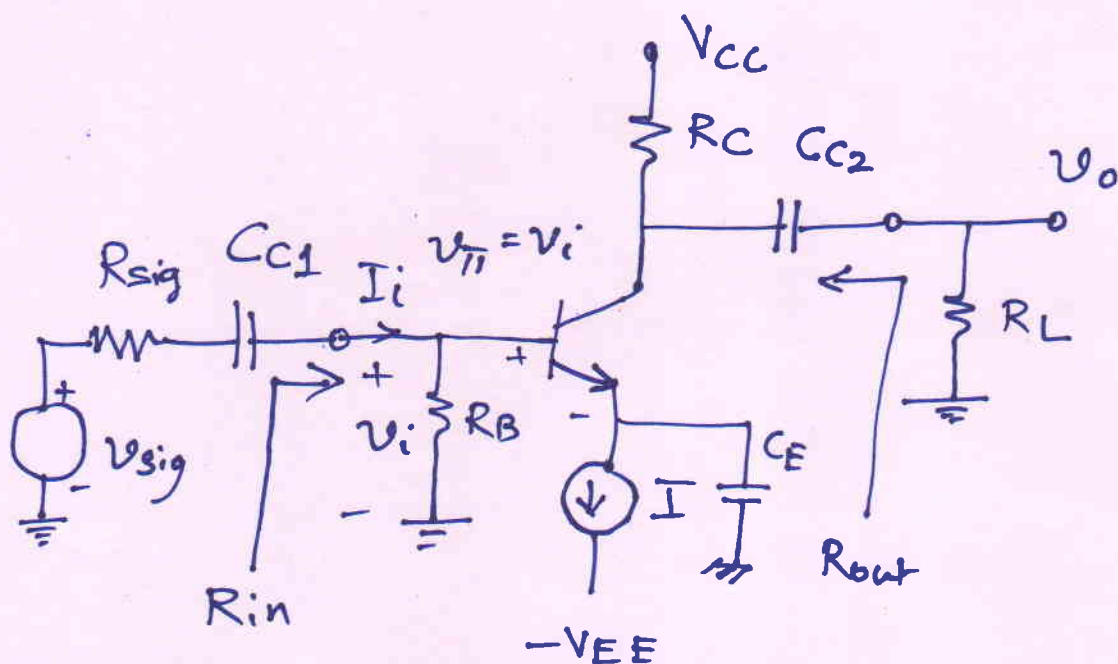 VCC
RC CC2
vo
Rsig CC1 Ii vπ = vi
+ + +
vsig vi RB
- - -
CE
I
RL
Rin
Rout
-VEE